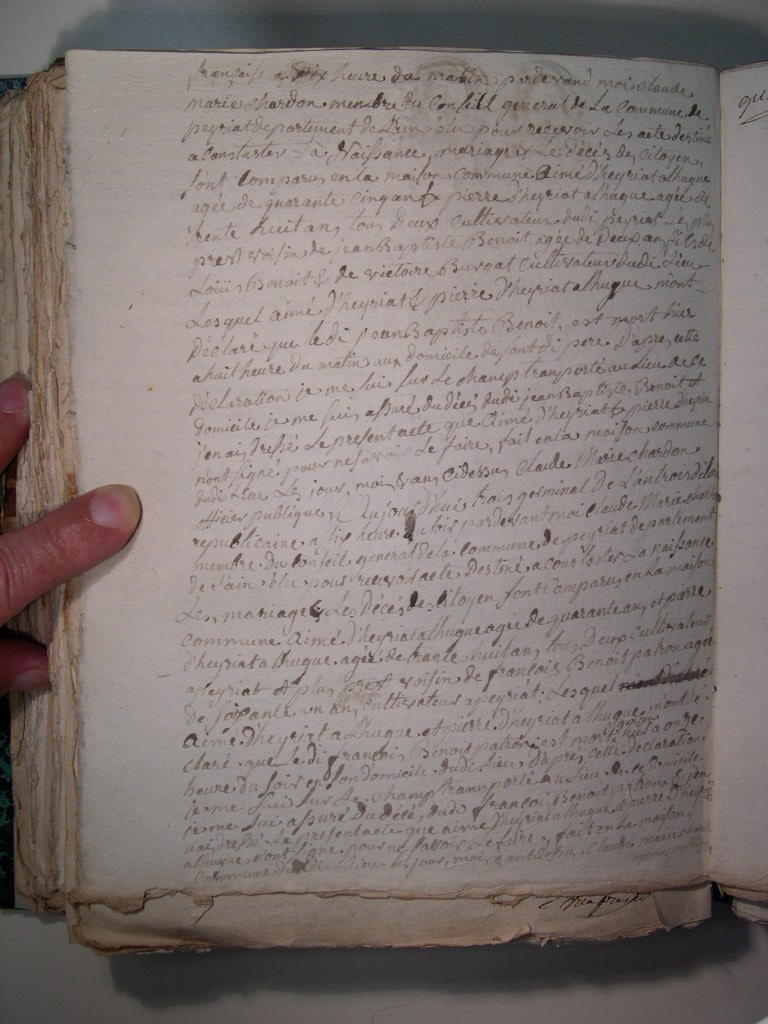 française a Dix heure du matin pardevand moi Claude
marie chardon menbre du Conseil general de La Commune de
peyriat departement de L'ain élu pour recevoir Les acte destiné
a constater La Naissance, mariage, & Le décès des Citoyen,
sont Comparu, en la maison Commune aimé D'heyriat alhugue
agée de quarante cinq an & pierre D'heyriat alhugue agée de
trente huit an, tous Deux Cultivateur dudi peyriat Le plus
prest voisin de jean Baptiste Benoit agée de Deux an, fils de
Loüis Benoit & de victoire Burgat Cultivateur dudi Lieu
Lesquel aimé D'heyriat & pierre D'heyriat alhugue mont
Déclaré que le di jean Baptiste Benoit, est mort hier
a huit heure du matin aux domicile de sont di pere D'apre, cette
déclaration je me sui sur Le champ transporté au Lieu de ce
domicile je me suis assuré du décé, dudi jean Baptiste Benoit &
jen ai Dressé Le present acte que aimé D'heyriat & pierre D'heyria
n'ont signé pour ne savoir Le faire, fait en la maison commune
dudi Lieu Les jour, moi, & an, cidessu, Claude Marie chardon
officier publique, Aujourd'hui trois germinal De L'an trois de la
republicaine a six heure du soir pardevant moi Claude Marie chardon
membre Du Conseil general de la commune de peyriat departement
de L'ain élu pour recevoir acte Destiné a constater La Naissante
Les, mariage & Les Décés des Citoyen sont Comparu, en La maison
commune aimé D'heyriat alhugue agée de quarante an, et pierre
D'heyriat alhugue, agée de trante huit an, tous Deux cultivateur
a peyriat & plus prest voisin de françois Benoit patron agée
de soixante un an, cultivateur a peyriat, Lesquel
aimé D'heyriat alhugue, et pierre D'heyriat alhugue, m'ont dé
claré que le di françois Benoit patron, est mort a onze
heure du soir en son domicile dudi Lieu, D'aprés cette declaration
je me sui sur Le champ transporté au Lieu de ce Domicile
je me sui assuré du décé, dudi françois Benoit patron & jen
nai, dressé Le present acte que aimé D'heyriat alhugue & pierre D'heyria
alhugue n'ont signé pour ne savoir Le faire, fait en La maison,
Commune dudi Lieu Les jour, moi, & an cidessu, Claude marie char